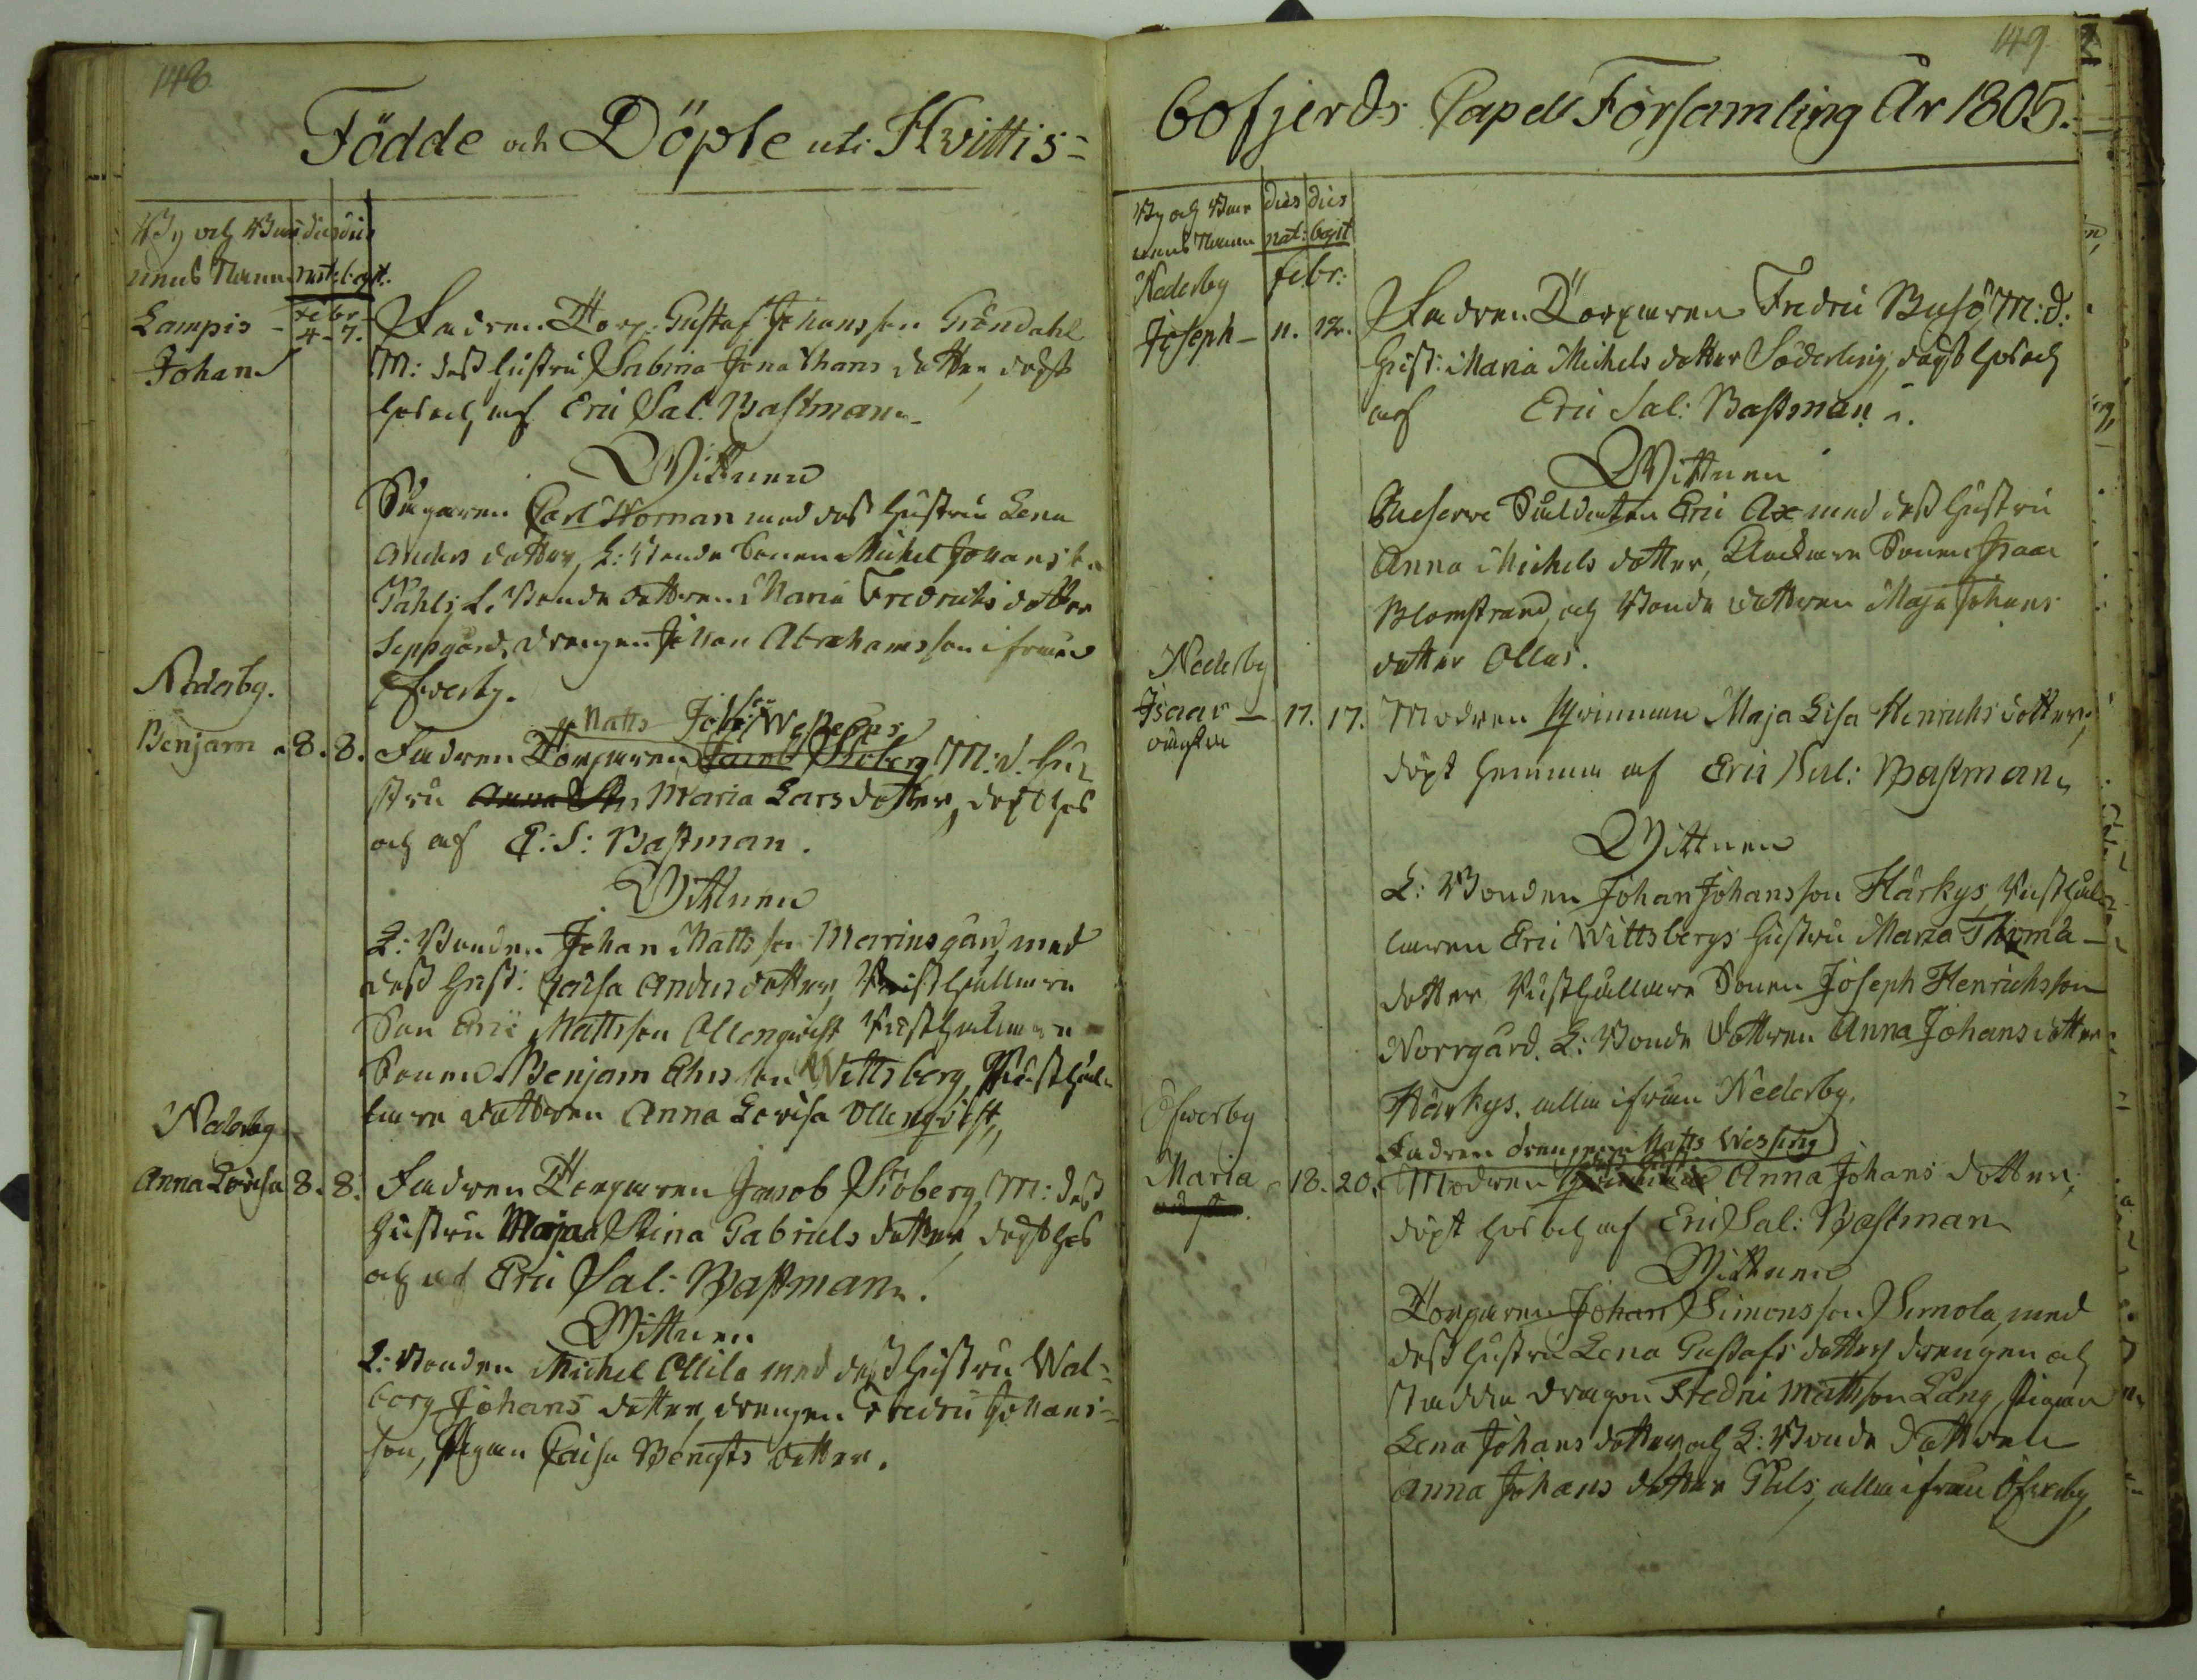 148
Födde och Döpte uti Hvittis=
By och Bar dies dies
nens Namn nat: bapt:
Lampis Febr.
4. 7.
Johan
Fadren Torp: Gustaf Johansson Gröndahl
M: dess hustru Sabina Jonathans dotter, döpt
hos och af Eric Sal: Bastman
Wittnen
Sågaren Carl Norman med dess hustru Lena
Anders dotter, L: Bonde Sonen Michel Johansson
Påhls, L. Bonde dottren Maria Fredrichs dotter
Seppgård, drengen Johan Abrahamsson ifrån
Öfverby.
Nederby.
Benjam 8. 8.
Matts Johsson Wessenus
Fadren Torparen Jacob Sjöberg M: d. hu=
stru Anna Maria Larsdotter, döpt hos
och af E: S: Bastman.
Wittnen
L: Bonden Johan Mattsson Marinsgård med
dess hust: Caisa Anders dotter, Rusthållare
Son Eric Mattsson Ollenqvist Rusthållare
Sonen Benjam Ericsson Wittsberg, Rusthål=
lare dottren Anna Lovisa Ollenqvist,
Nederby
Anna Lovisa 8. 8.
Fadren Torparen Jacob Sjöberg, M: dess
hustru Maja Stina Gabriels dotter, döpt hos
och af Eric Sal: Bastman.
Wittnen
L: Bonden Michel Ollila med dess hustru Wal=
borg Johans dotter, drengen Fredric Johans=
son, Pigan Caisa Bengts dotter.
149
bofjerds Capell Församling År 1805.
By och Bar dies dies
nens Namn nat: bapt
Nederby Febr:
Joseph 11. 12.
Fadren Torparen Fredric Busö, M: d:
Hust: Maria Michels dotter Söderling, döpt hos och
af Eric Sal: Bastman.
Wittnen
Reserve Soldaten Eric Ax med dess hustru
Anna Michels dotter, Klockare Sonen Isaac
Blomstrand, och Bonde dottren Maja Johans
dotter Ollas.
Nederby
Isaac 17. 17.
oägta
Modren Qvinnan Maja Lisa Henrichs dotter,
döpt hemma af Eric Sal: Bastman,
Wittnen
L: Bonden Johan Johansson Härkys, Rusthål
laren Eric Wittsbergs hustru Maria Thoma
dotter Rusthållare Sonen Joseph Henrichsson
Norrgård. L: Bonde dottren Anna Johans dotter
Härkys. alla ifrån Nederby.
Öfverby
Maria 18. 20.
Fadren drengen Matts Wessing
Modren Anna Johans dotter,
döpt hos och af Eric Sal: Bastman
Wittnen
Torparen Johan Simonsson Simola, med
dess hustru Lena Gustafs dotter, drengen och
stadda Dragon Fredric Mattsson Lång, Pigan
Lena Johans dotter och L: Bonde dottren
Anna Johans dotter Påls, alla ifrån Öfverby,